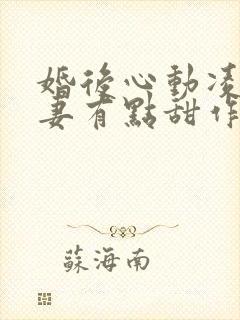 婚後心動凌
妻有點甜作
蘇海南